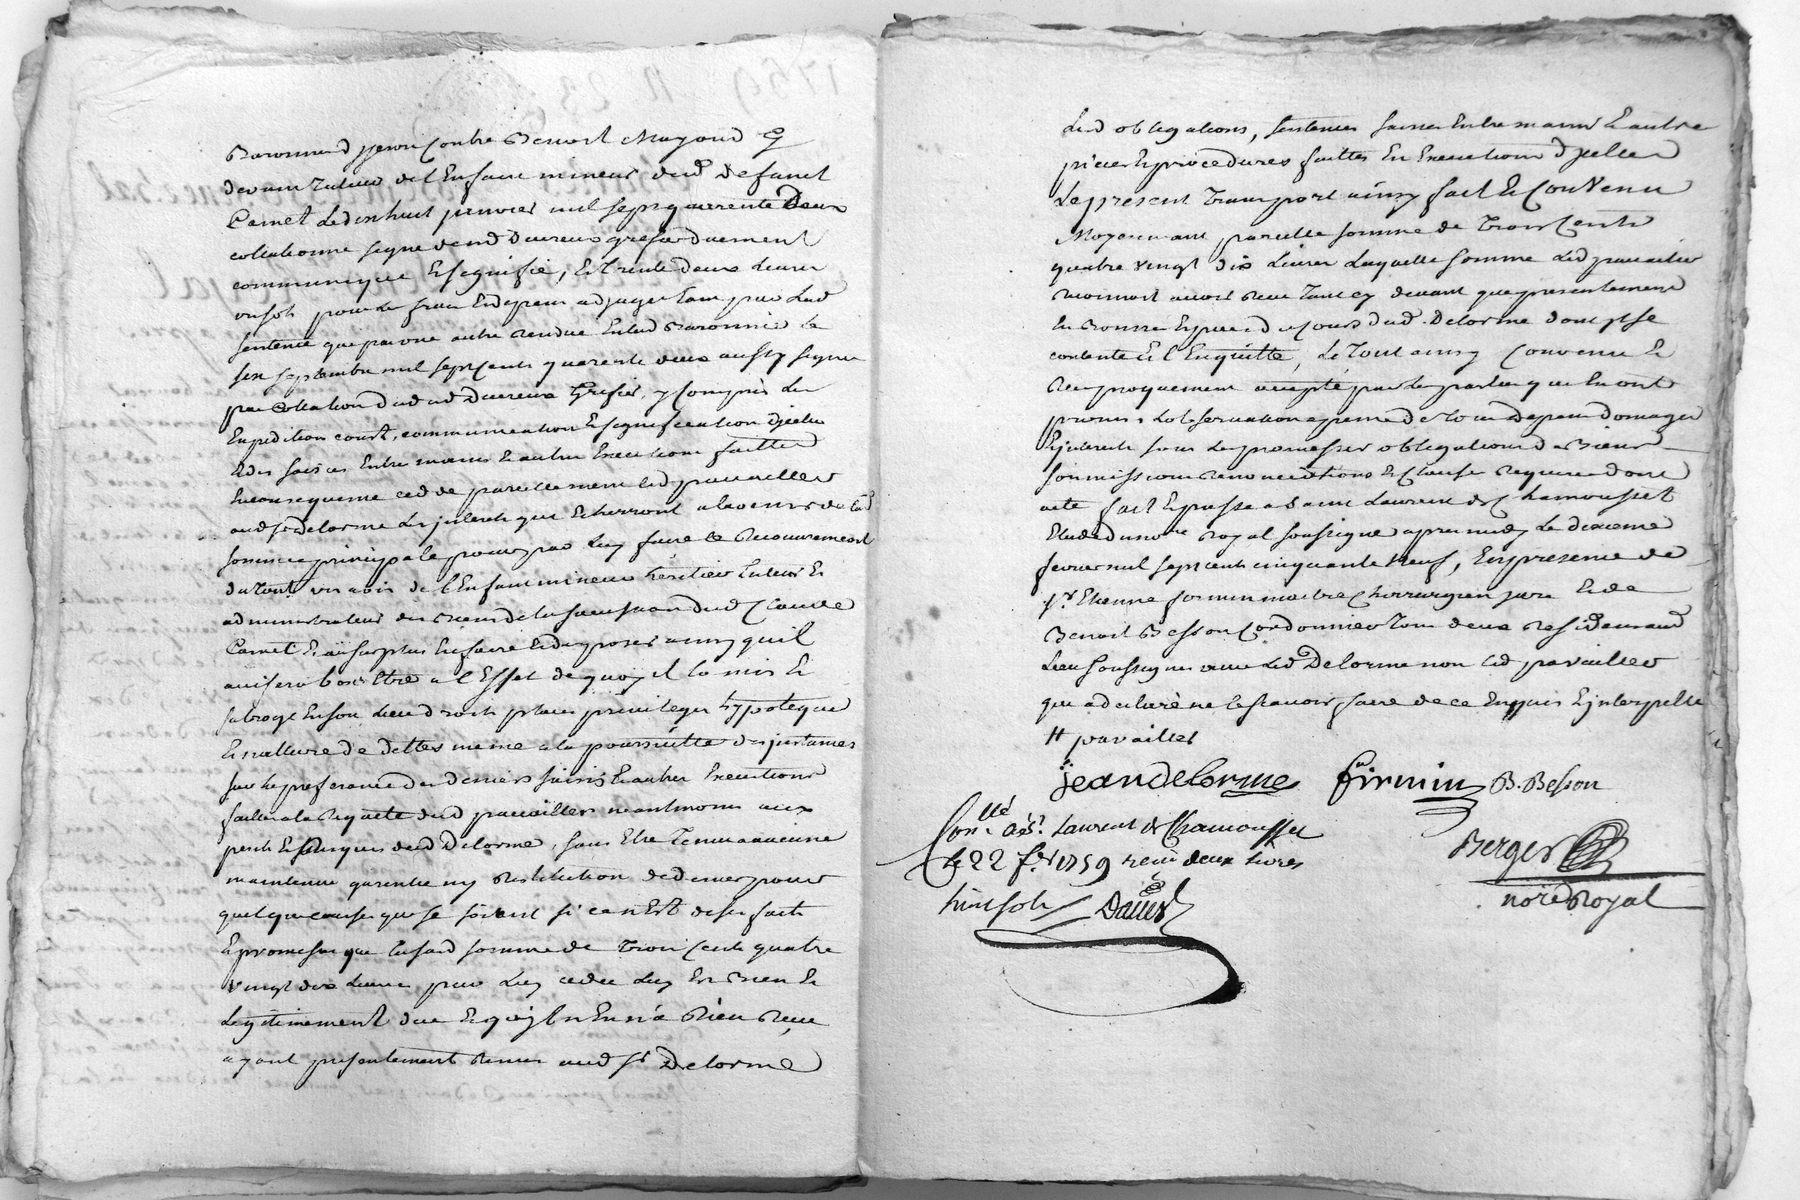 contre Benoist Mayoud
tuteur de l'Enfant mineur dud deffunct
Carret Le dixhuit janvier mil sept quarrente Deux
collationné signé dud Ducreux greffier duement
communiqué Et signifié, Et trente deux Livres
sentence que par une autre rendue Enlad Baronnie Le
six septembre mil sept Cents quarente deux aussy signée
par Collation dud Ducreux Greffier, y Compris Les
Expedition court, communication Et signification
Et des saisies Entre mains Et autres Executions faittes
En consequence cedde pareillement led pravailler
aud sr Delorme Les jnterets qui Echerront
somme principale pour par Luy faire Le Recouvrement
du tout vis avis de l'Enfant mineur heritier tuteur Et
administrateur des Biens de la succession dud Claude
Carret Et au surplus En faire Et disposer ainsy quil
avisera bon Etre a l'Effet de quoy il la mis Et
subrogé En son Lieu droits places privileges hypoteque
Et nature de dettes meme a la poursuitte des jnstances
sur la preference des deniers saisis Et autres Executions
faittes a la Requete dud pravailler neantmoins aux
perils Et risques dud Delorme, sans Etre Tenu a aucune
maintenue garentie ny Restitution de deniers pour
quelque cause que se soient si ce n'Est de ses faits
Et promesse que lasusd somme de Trois Cents quatre
vingt dix Livres par Luy cedée Luy Est Bien Et
Legitimement due Et qu'jl n'En n'a Rien Reçu
ayant presentement Remis aud sr Delorme
Lesd obligations, sentences saisies Entre mains Et autres
pieces Et procedures faittes En Execution d'jcelles
Le present Transport ainsy fait Et Convenu
Moyennant pareille somme de Trois Cents
quatre vingt dix Livres Laquelle somme Led pravailler
reconnoit avoir Reçu Tant cy devant que presentement
dud. Delorme dont jl se
contente Et l'Enquitte, Le Tout ainsy Convenu Et
Reciproquement accepté par les parties qui En ont
promis L'observation a peine de tous depens Domages
Et jnterets sous Les promesses obligations de Biens
soumissions renonciations Et Clauses Requises dont
acte fait Et passé a Saint Laurent de Chamousset
Etude du nore Royal soussigné apres midy Le dixieme
fevrier mil sept cents cinquante Neuf, En presence de
sr Etienne firmin maitre Chirurgien juré Et de
Benoit Besson Cordonnier Tous deux Residents aud
Lieu soussignes avec Led Delorme non Led pravailler
qui a declaré ne le sçavoir faire de ce Enquis Et jnterpellé
# pravailler
jean delorme firmin B. Besson
Conllé à St. Laurent de Chamousset
le 22 fer 1759 reçu deux livres
huit sols
Berger
nore Royal